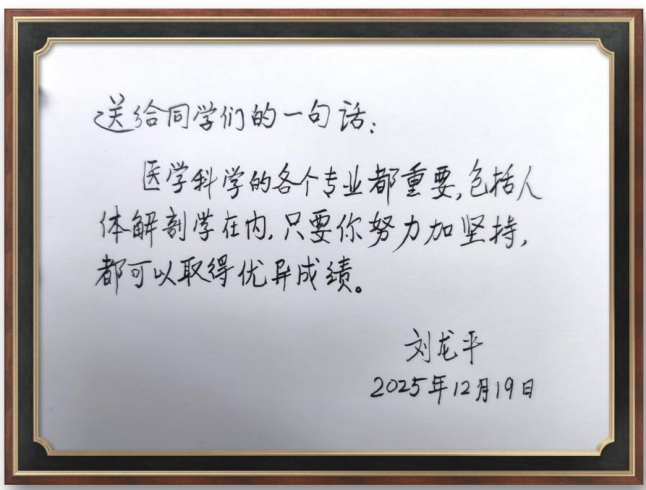 送给同学们的一句话:
医学科学的各个专业都重要,包括人
体解剖学在内,只要你努力加坚持,
都可以取得优异成绩。
刘龙平
2025年12月19日